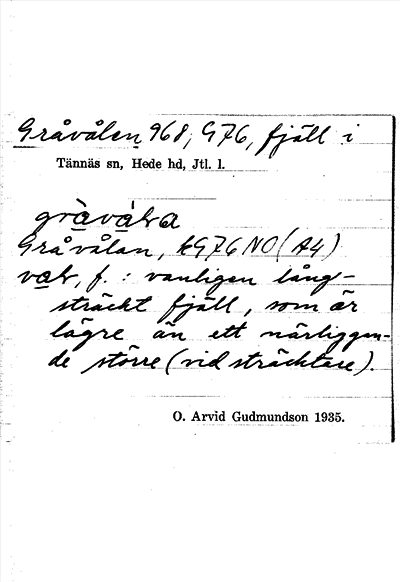 Gråvålen 968, G76, fjäll i
Tännäs sn, Hede hd, Jtl. l.
Gråvålan, kG76NO(A4)
f.: vanligen lång-
sträckt fjäll, som är
lägre än ett närliggan-
de större (vidsträcktare).
O. Arvid Gudmundson 1935.